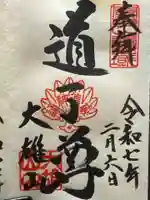 奉拝
道了尊
大雄山
令和七年
二月六日